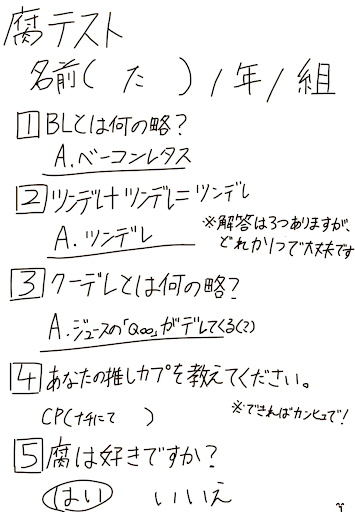 腐テスト
名前( た ) 1年1組
1 BLとは何の略?
A.ベーコンレタス
2 ツンデレ+ツンデレ=ツンデレ
※解答は3つありますが、
どれか1つで大丈夫です
A.ツンデレ
3 クーデレとは何の略?
A.ジュースの「Qoo」がデレてくる(?)
4 あなたの推しカプを教えてください。
CP(ナチにて )
※できればカンヒュで!
5 腐は好きですか?
はい いいえ